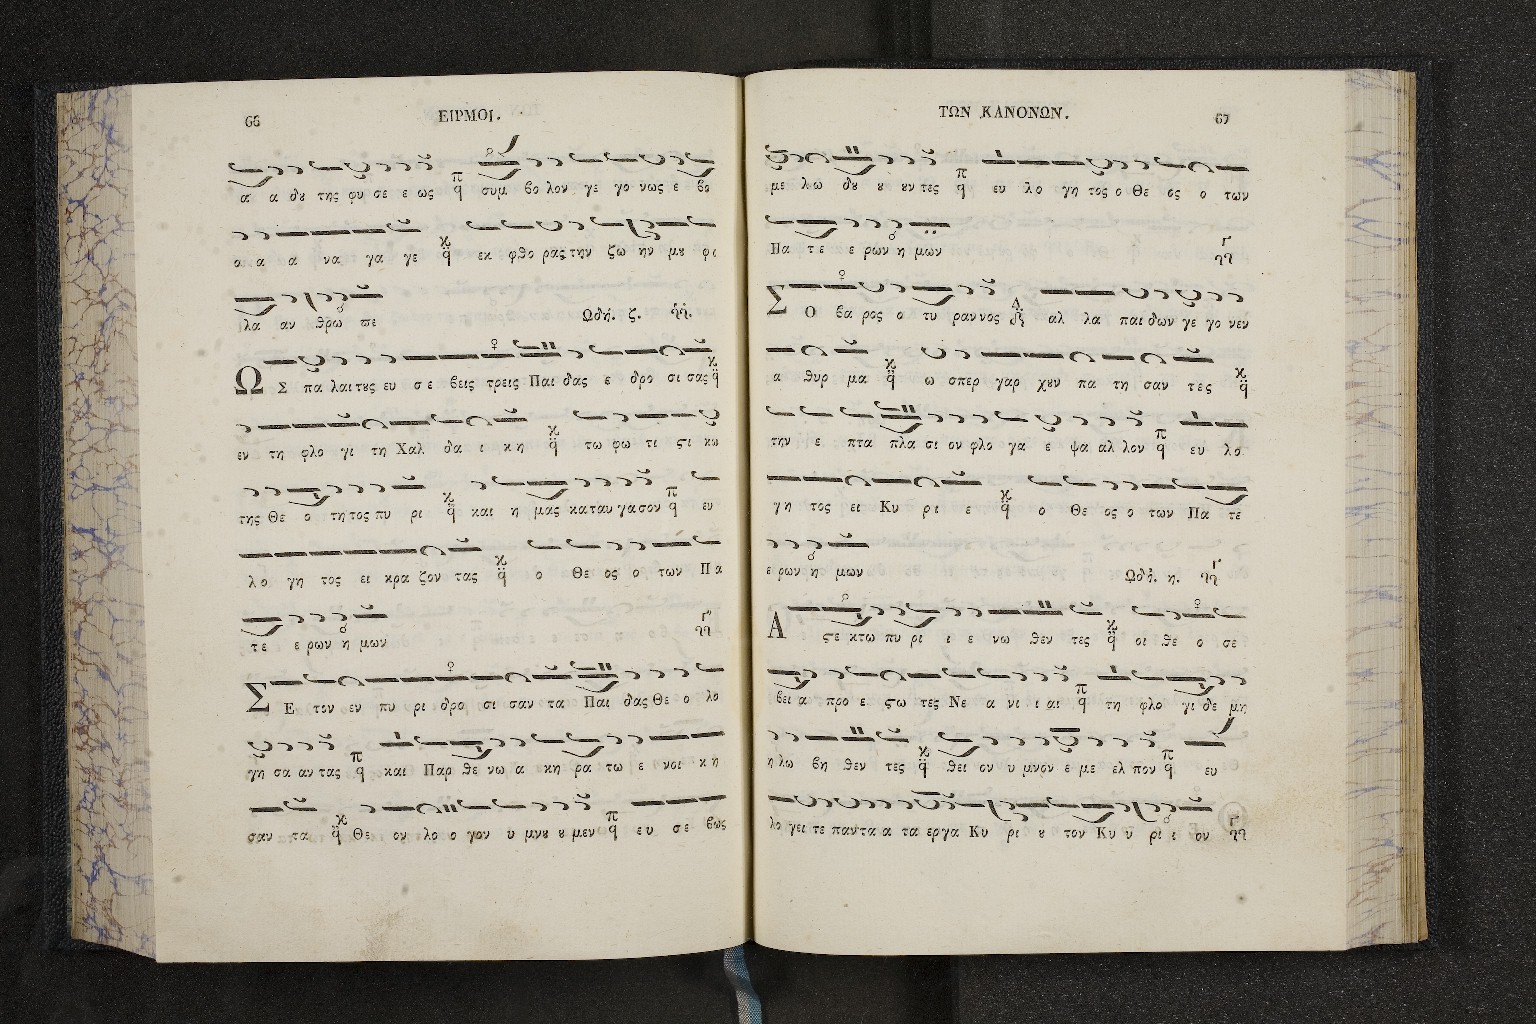 66
ΕΙΡΜΟΙ.
α α δȣ της φυ σε ε ως π̣ ϥ συμ βο λον γε γο νως ε βο
ο α α να γα γε ϥ εκ φθο ρας την ζω ην μȣ φι
λα αν θρω πε Ωδή. ζ.
Ω Σ πα λαι τȣς ευ σε βεις τρεις Παι δας ε δρο σι σας ϥ
εν τη φλο γι τη Χαλ δα ι κη ϥ τω φω τι ϛι κω
της Θε ο τη τος πυ ρι ϥ και η μας καταυ γα σον ϥ ευ
λο γη τος ει κρα ζον τας ϥ ο Θε ος ο των Πα
τε ε ρων η μων
Σ Ε τον εν πυ ρι δρο σι σαν τα Παι δας Θε ο λο
γη σα αν τας ϥ και Παρ θε νω α κη ρα τω ε νοι κη
σαν τα ϥ Θε ον λο ο γον υ μνȣ ȣ μεν ϥ ευ σε βως
ΤΩΝ ΚΑΝΟΝΩΝ.
67
με λω δȣ ȣ ȣν τες ϥ ευ λο γη τος ο Θε ος ο των
Πα τε ε ρων η μων
Σ Ο βα ρος ο τυ ραν νος αλ λα παι δων γε γο νεν
α θυρ μα ϥ ω σπερ γαρ χȣν πα τη σαν τες ϥ
την ε πτα πλα σι ον φλο γα ε ψα αλ λον ϥ ευ λο
γη τος ει Κυ ρι ε ϥ ο Θε ος ο των Πα τε
ε ρων η μων Ωδή. η.
Α ϛε κτω πυ ρι ι ε νω θεν τες ϥ οι θε ο σε
βει α προ ε ϛω τες Νε α νι ι αι ϥ τη φλο γι δε μη
η λω βη θεν τες ϥ θει ον υ μνον ε με ελ πον ϥ ευ
λο γει τε παντα α τα εργα Κυ ρι ȣ τον Κυ υ ρι ι ον